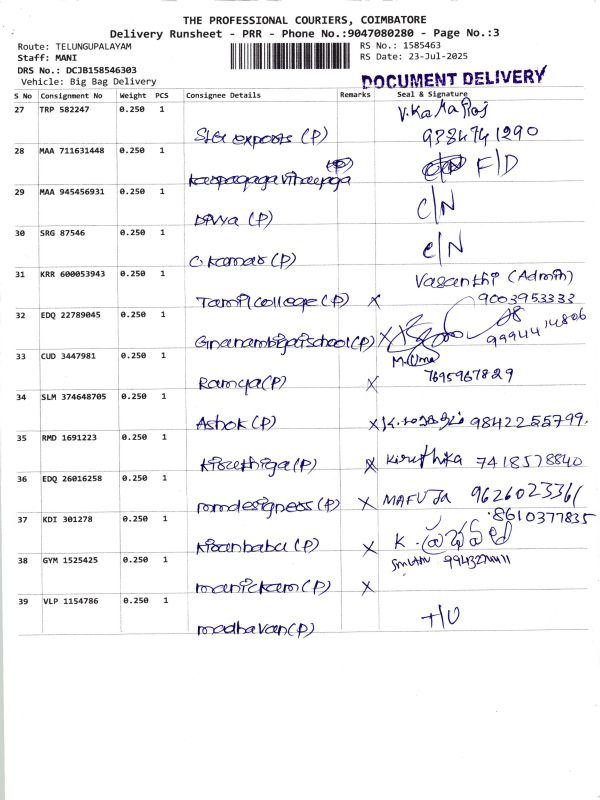 THE PROFESSIONAL COURIERS, COIMBATORE
Delivery Runsheet - PRR - Phone No.:9047080280 - Page No.:3
Route: TELUNGUPALAYAM RS No.: 1585463
Staff: MANI RS Date: 23-Jul-2025
DRS No.: DCJB158546303
Vehicle: Big Bag Delivery DOCUMENT DELIVERY
S No Consignment No Weight PCS Consignee Details Remarks Seal & Signature
27 TRP 582247 0.250 1 V.Kamaraj
exports (P) 9384741290
28 MAA 711631448 0.250 1 F/D
(P)
29 MAA 945456931 0.250 1 C/N
Divya (P)
30 SRG 87546 0.250 1 C/N
C Kumar (P)
31 KRR 600053943 0.250 1 Vasanthi (Admin)
Tamil college (P) X 9003953333
32 EDQ 22789045 0.250 1
Gnanambigai school (P) X 9994414806
33 CUD 3447981 0.250 1 M. Uma
Ramya (P) X 7695967829
34 SLM 374648705 0.250 1
Ashok (P) X 9842255799.
35 RMD 1691223 0.250 1
Kiruthiga (P) X Kiruthika 7418578840
36 EDQ 26016258 0.250 1
mmdesigness (P) X MAFUJa 9626023361
37 KDI 301278 0.250 1 8610377835
Kisanbabu (P) X K.
38 GYM 1525425 0.250 1
manickam (P) X
39 VLP 1154786 0.250 1
madhavan (P)